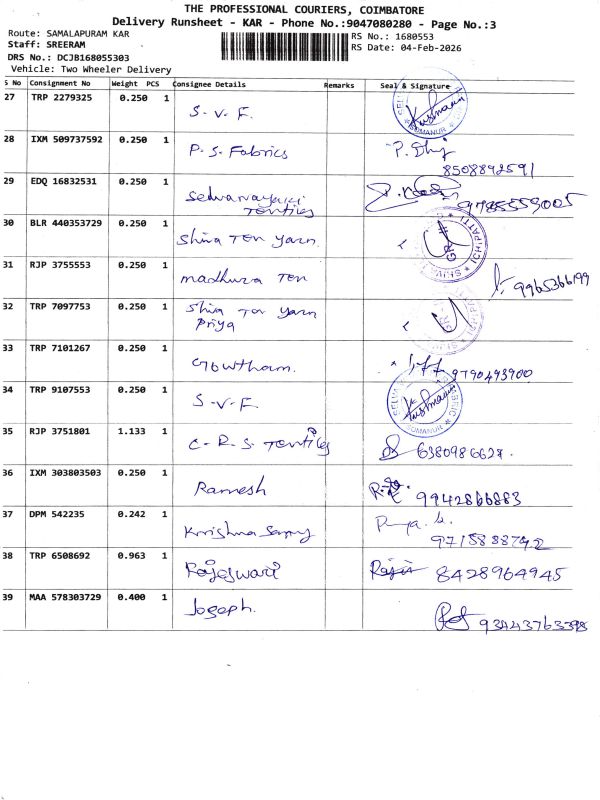 THE PROFESSIONAL COURIERS, COIMBATORE
Delivery Runsheet - KAR - Phone No.:9047080280 - Page No.:3
Route: SAMALAPURAM KAR
Staff: SREERAM
DRS No.: DCJB168055303
Vehicle: Two Wheeler Delivery
RS No.: 1680553
RS Date: 04-Feb-2026
S No Consignment No Weight PCS Consignee Details Remarks Seal & Signature
27 TRP 2279325 0.250 1 S.V.F.
SOMANUR
28 IXM 509737592 0.250 1 P.S. Fabrics
8508892591
29 EDQ 16832531 0.250 1 Selvanayaki
Textiles 9785559005
30 BLR 440353729 0.250 1 Shiva Tex Yarn
ICHIPATTI
31 RJP 3755553 0.250 1 Madhura Tex
9965366199
32 TRP 7097753 0.250 1 Shiva Tex Yarn
Priya
33 TRP 7101267 0.250 1 Gowtham. 9790493900
34 TRP 9107553 0.250 1 S.V.F
SOMANUR
35 RJP 3751801 1.133 1 C.R.S. Textiles 6380986627.
36 IXM 303803503 0.250 1 Ramesh 9942866883
37 DPM 542235 0.242 1
9715888742
38 TRP 6508692 0.963 1 Rajeswari 8428964945
39 MAA 578303729 0.400 1 Joseph. 93443763398